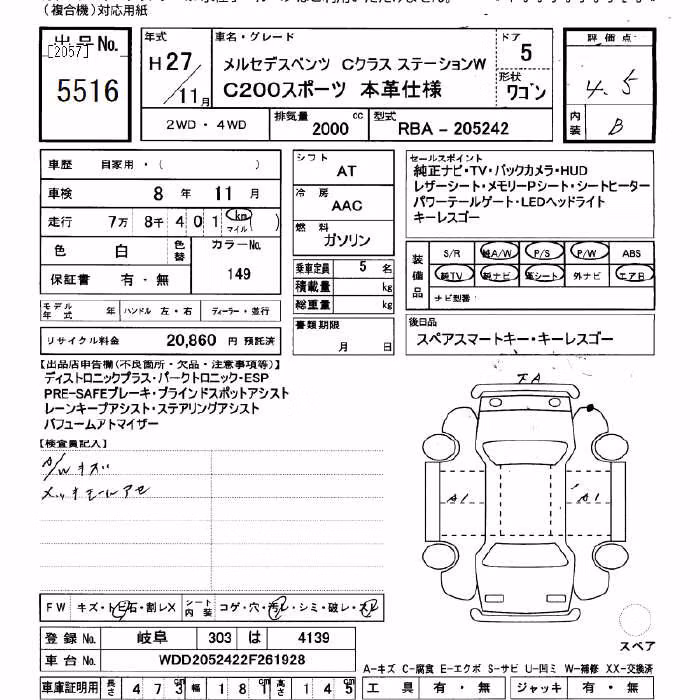 (複合機)対応用紙
出品No.
[2057]
5516
年式
H27/11月
車名・グレード
メルセデスベンツ Cクラス ステーションW
C200スポーツ 本革仕様
ドア
5
形状
ワゴン
評価点
4.5
内装
B
2WD・4WD
排気量
2000 cc
型式
RBA-205242
車歴 自家用・( )
車検 8年 11月
走行 7万 8千 401 km マイル( )
色 白 色替
カラーNo.
149
保証書 有・無
モデル年式 年 ハンドル 左・右 ディーラー・並行
リサイクル料金 20,860 円 預託済
シフト
AT
冷房
AAC
燃料
ガソリン
乗車定員 5 名
積載量 kg
総重量 kg
書類期限
月 日
セールスポイント
純正ナビ・TV・バックカメラ・HUD
レザーシート・メモリーPシート・シートヒーター
パワーテールゲート・LEDヘッドライト
キーレスゴー
装備品
S/R 純A/W P/S P/W ABS
純TV 純ナビ 革シート 外ナビ エアB
ナビ型番:
後日品
スペアスマートキー・キーレスゴー
【出品店申告欄(不良箇所・欠品・注意事項等)】
ディストロニックプラス・パークトロニック・ESP
PRE-SAFEブレーキ・ブラインドスポットアシスト
レーンキープアシスト・ステアリングアシスト
パフュームアトマイザー
【検査員記入】
A/Wキズ
メッキモールアセ
A1
A1
スペア
FW キズ・トビ石・割レX
シート内装 コゲ・穴・汚レ・シミ・破レ・スレ
登録No. 岐阜 303 は 4139
車台No. WDD2052422F261928
A-キズ C-腐食 E-エクボ S-サビ U-凹ミ W-補修 XX-交換済
車庫証明用 長さ 473cm 幅 181cm 高さ 145cm
工具 有・無 ジャッキ 有・無